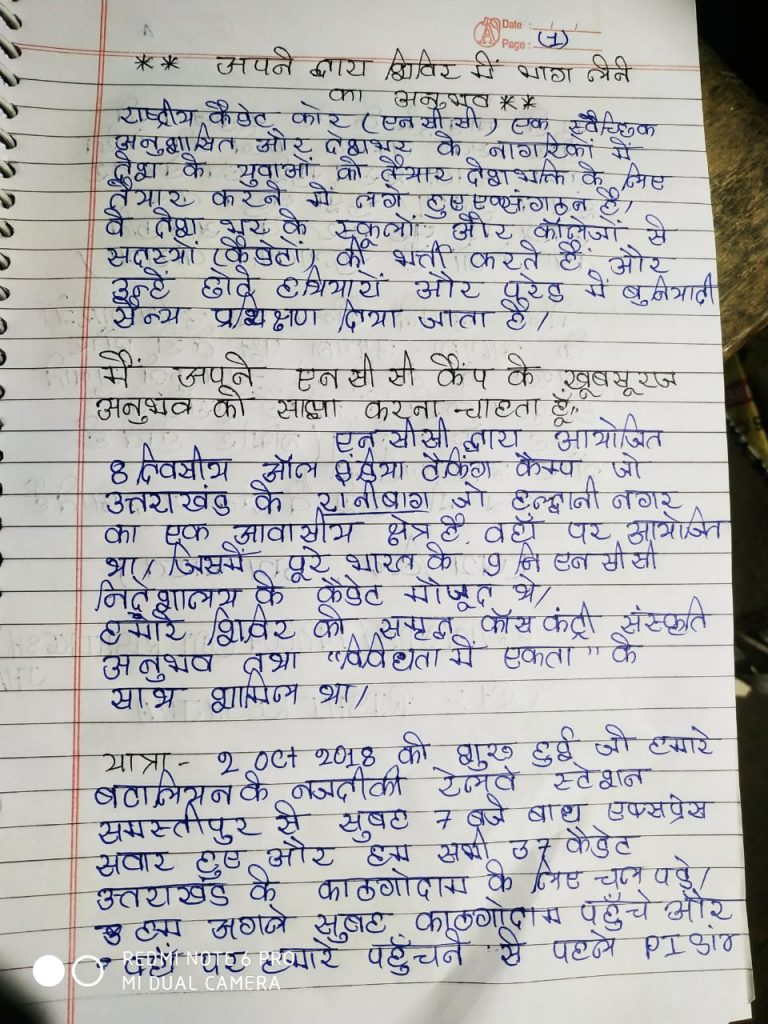 Date : __/__/__
Page : (1)
** अपने द्वारा शिविर में भाग लेने
का अनुभव **
राष्ट्रीय कैडेट कोर (एनसीसी) एक स्वैच्छिक
अनुशासित और देशभर के नागरिकों में
देश के युवाओं को तैयार देशभक्ति के लिए
तैयार करने में लगे हुए संगठन है।
वे देश भर के स्कूलों और कॉलेजों से
सदस्यों (कैडेटों) की भर्ती करते हैं और
उन्हें छोटे हथियारों और परेड में बुनियादी
सैन्य प्रशिक्षण दिया जाता है।
मैं अपने एनसीसी कैंप के खूबसूरज
अनुभव को साझा करना चाहता हूँ,
एनसीसी द्वारा आयोजित
8 दिवसीय ऑल इंडिया ट्रैकिंग कैम्प जो
उत्तराखंड के रानीबाग जो हल्द्वानी नगर
का एक आवासीय क्षेत्र है, वहाँ पर आयोजित
था। जिसमें पूरे भारत के 9 नि एनसीसी
निदेशालय के कैडेट मौजूद थे।
हमारे शिविर को समृद्ध क्रॉस कंट्री संस्कृति
अनुभव तथा "विविधता में एकता" के
साथ शामिल था।
यात्रा - 2 Oct 2018 को शुरू हुई जो हमारे
बटालियन के नजदीकी रेलवे स्टेशन
समस्तीपुर से सुबह 7 बजे बाघ एक्सप्रेस
सवार हुए और हम सभी 37 कैडेट
उत्तराखंड के काठगोदाम के लिए चल पड़े।
हम अगले सुबह काठगोदाम पहुँचे और
वहाँ पर हमारे पहुँचने से पहले PI डांग
REDMI NOTE 6 PRO
MI DUAL CAMERA